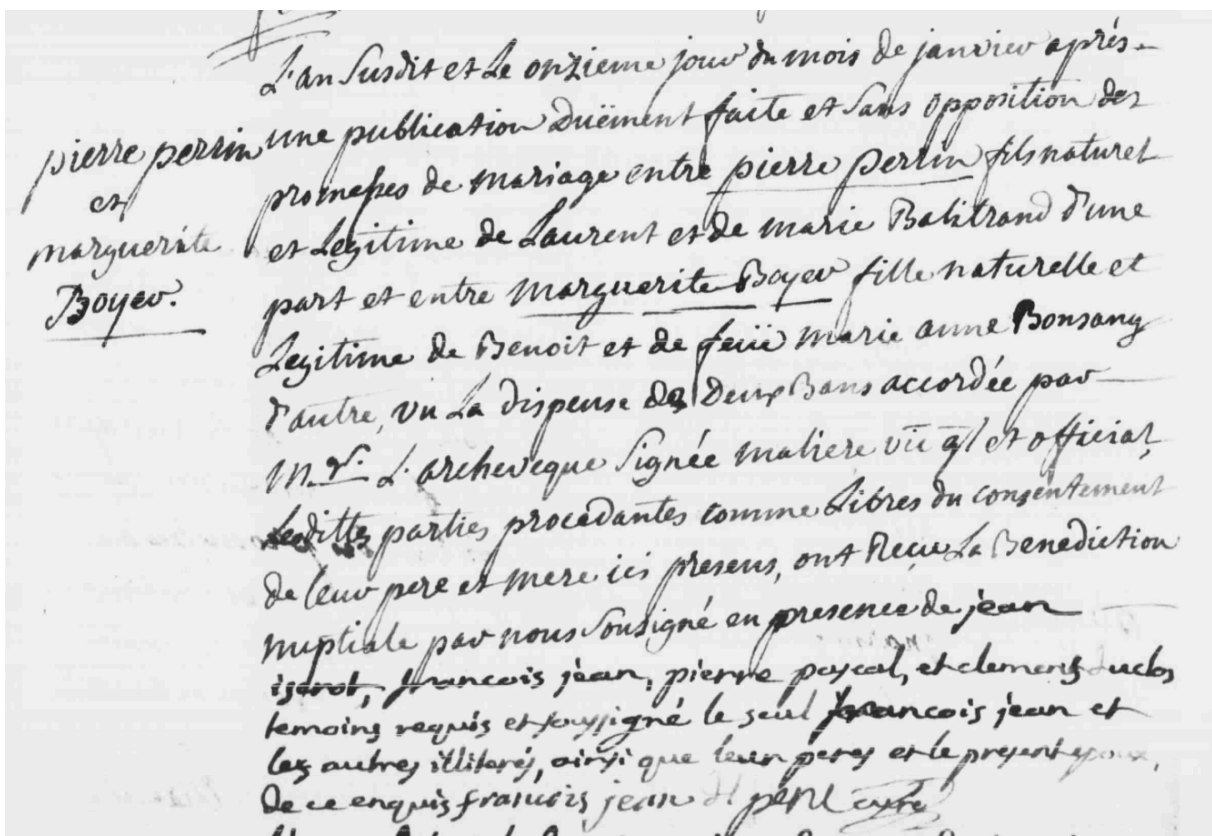 L'an susdit et Le onzieme jour du mois de janvier aprés
pierre perrin
et
marguerite
Boyer.
une publication duëment faite et sans opposition des
promesses de mariage entre pierre perrin fils naturel
et Legitime de Laurent et de marie Balitrand d'une
part et entre marguerite Boyer fille naturelle et
Legitime de Benoit et de feüe marie anne Bonsang
d'autre, vu La dispense des Deux Bans accordée par
M.gr. L'archeveque signée maliere vic gl et official,
Lesdittes parties procedantes comme Libres du consentement
de leur pere et mere ici presens, ont Reçu La Benediction
nuptiale par nous sousigné en presence de jean
francois jean, pierre pascal, et clement duclos
temoins requis et soussigné le seul francois jean et
les autres illiterés, ainsi que leurs peres et le present epoux,
de ce enquis francois jean